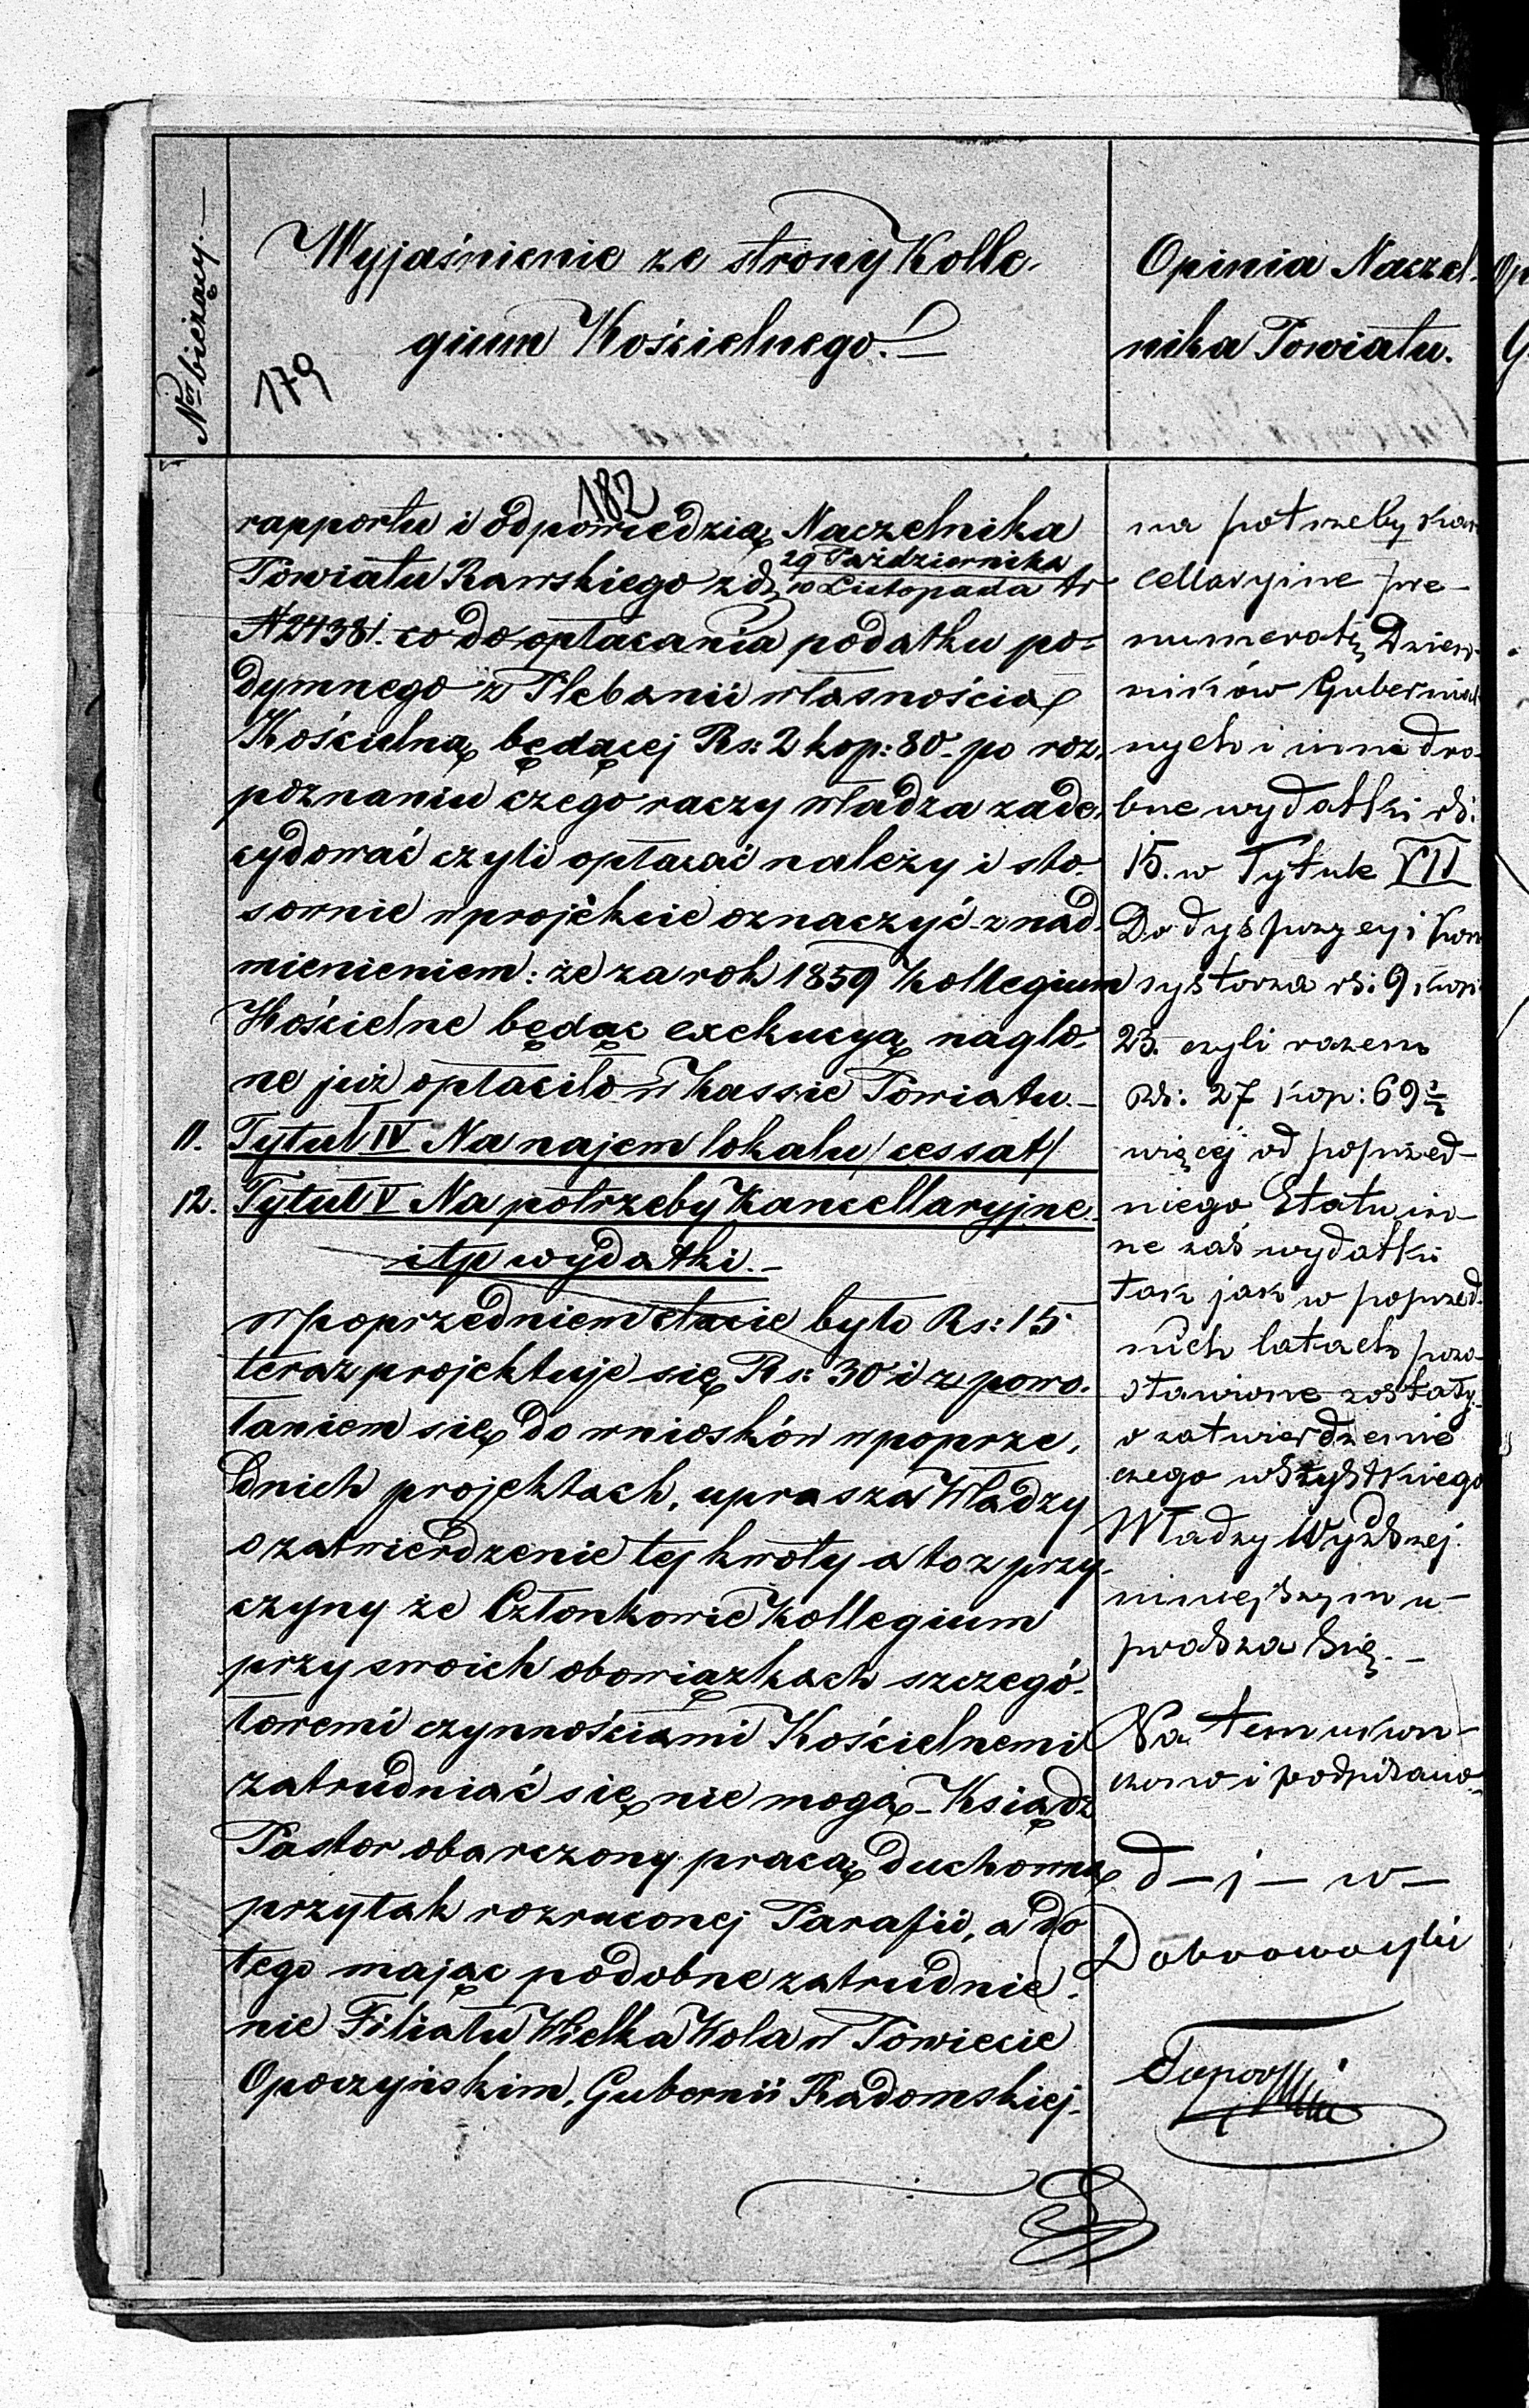 Nor bieżący.—
Wyjaśnienie ze strony Kolle-
gium Kościelnego.—
179
Opinia Naczel-
nika Powiatu.
182
rapportu i odpowiedzią Naczelnika
29 Października
Powiatu Rawskiego z d. 10 Listopada tr
N 24381. co do opłacania podatku po-
dymnego z Plebanii własnością
Kościelną będącej Rs: 2 kop: 80 – po roz-
poznaniu czego raczy władza zade-
cydować czyli opłacać należy i sto-
sownie w projekcie oznaczyć – z nad-
mienieniem: że za rok 1859 Kollegium
Kościelne będąc exekucyą naglo-
ne już opłaciło w Kassie Powiatu.—
11. Tytuł IV Na najem lokalu /cessat/
12. Tytuł V Na potrzeby Kancellaryjne
itp wydatki.—
w poprzedniem etacie było Rs: 15
teraz projektuje się Rs: 30 i z powo-
łaniem się do wniosków w poprze-
dnich projektach, uprasza Władzy
o zatwierdzenie tej kwoty a to z przy-
czyny że Członkowie Kollegium
przy swoich obowiązkach szczegó-
łowemi czynnościami Kościelnemi
zatrudniać się nie mogą – Ksiądz
Pastor obarczony pracą duchowną
przy tak rozrzuconej Parafii, a do
tego mając podobne zatrudnie-
nie Filiału Wielka Wola w Powiecie
Opoczyńskim, Gubernii Radomskiej.
na potrzeby kan
cellaryine pre-
numeratę Dzien-
ników Gubernial
nych i inne dro-
bne wydatki rs:
15. w Tytule VII
Do dyspozycyi Kon
systorza rs: 9 kop:
23. czyli razem
Rs: 27 kop: 69 ½
więcej od poprzed-
niego Etatu in-
ne zaś wydatki
tak jak w poprzed
nich latach pozo-
stawione zostały.
o zatwierdzenie
czego wszystkiego
Władzy Wyższej
niniejszym u-
prasza się.—
Na tem ukoń-
czono i podpisano.
d – j – w –